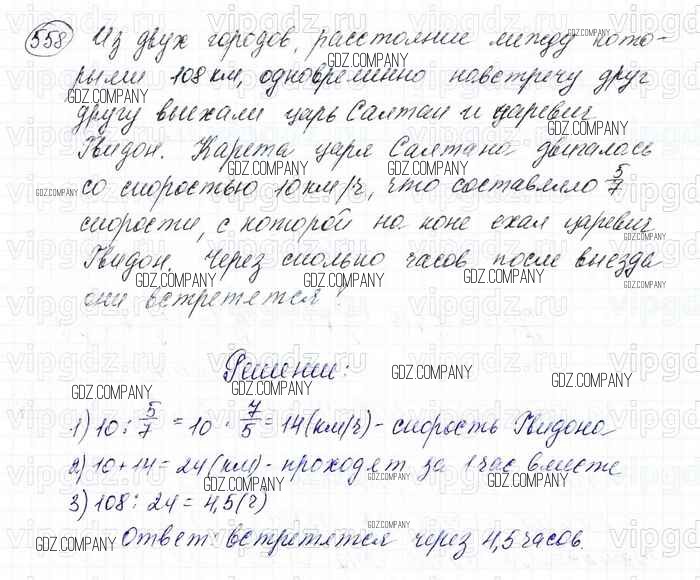 558 Из двух городов, расстояние между кото-
рыми 108 км, одновременно навстречу друг
другу выехали царь Салтан и царевич
Гвидон. Карета царя Салтана двигалась
со скоростью 10 км/ч, что составляло 5/7
скорости, с которой на коне ехал царевич
Гвидон. Через сколько часов после выезда
они встретятся?
Решение:
1) 10 : 5/7 = 10 · 7/5 = 14 (км/ч) - скорость Гвидона
2) 10 + 14 = 24 (км) - проходят за 1 час вместе
3) 108 : 24 = 4,5 (ч)
Ответ: встретятся через 4,5 часов.
GDZ.COMPANY
vipgdz.ru